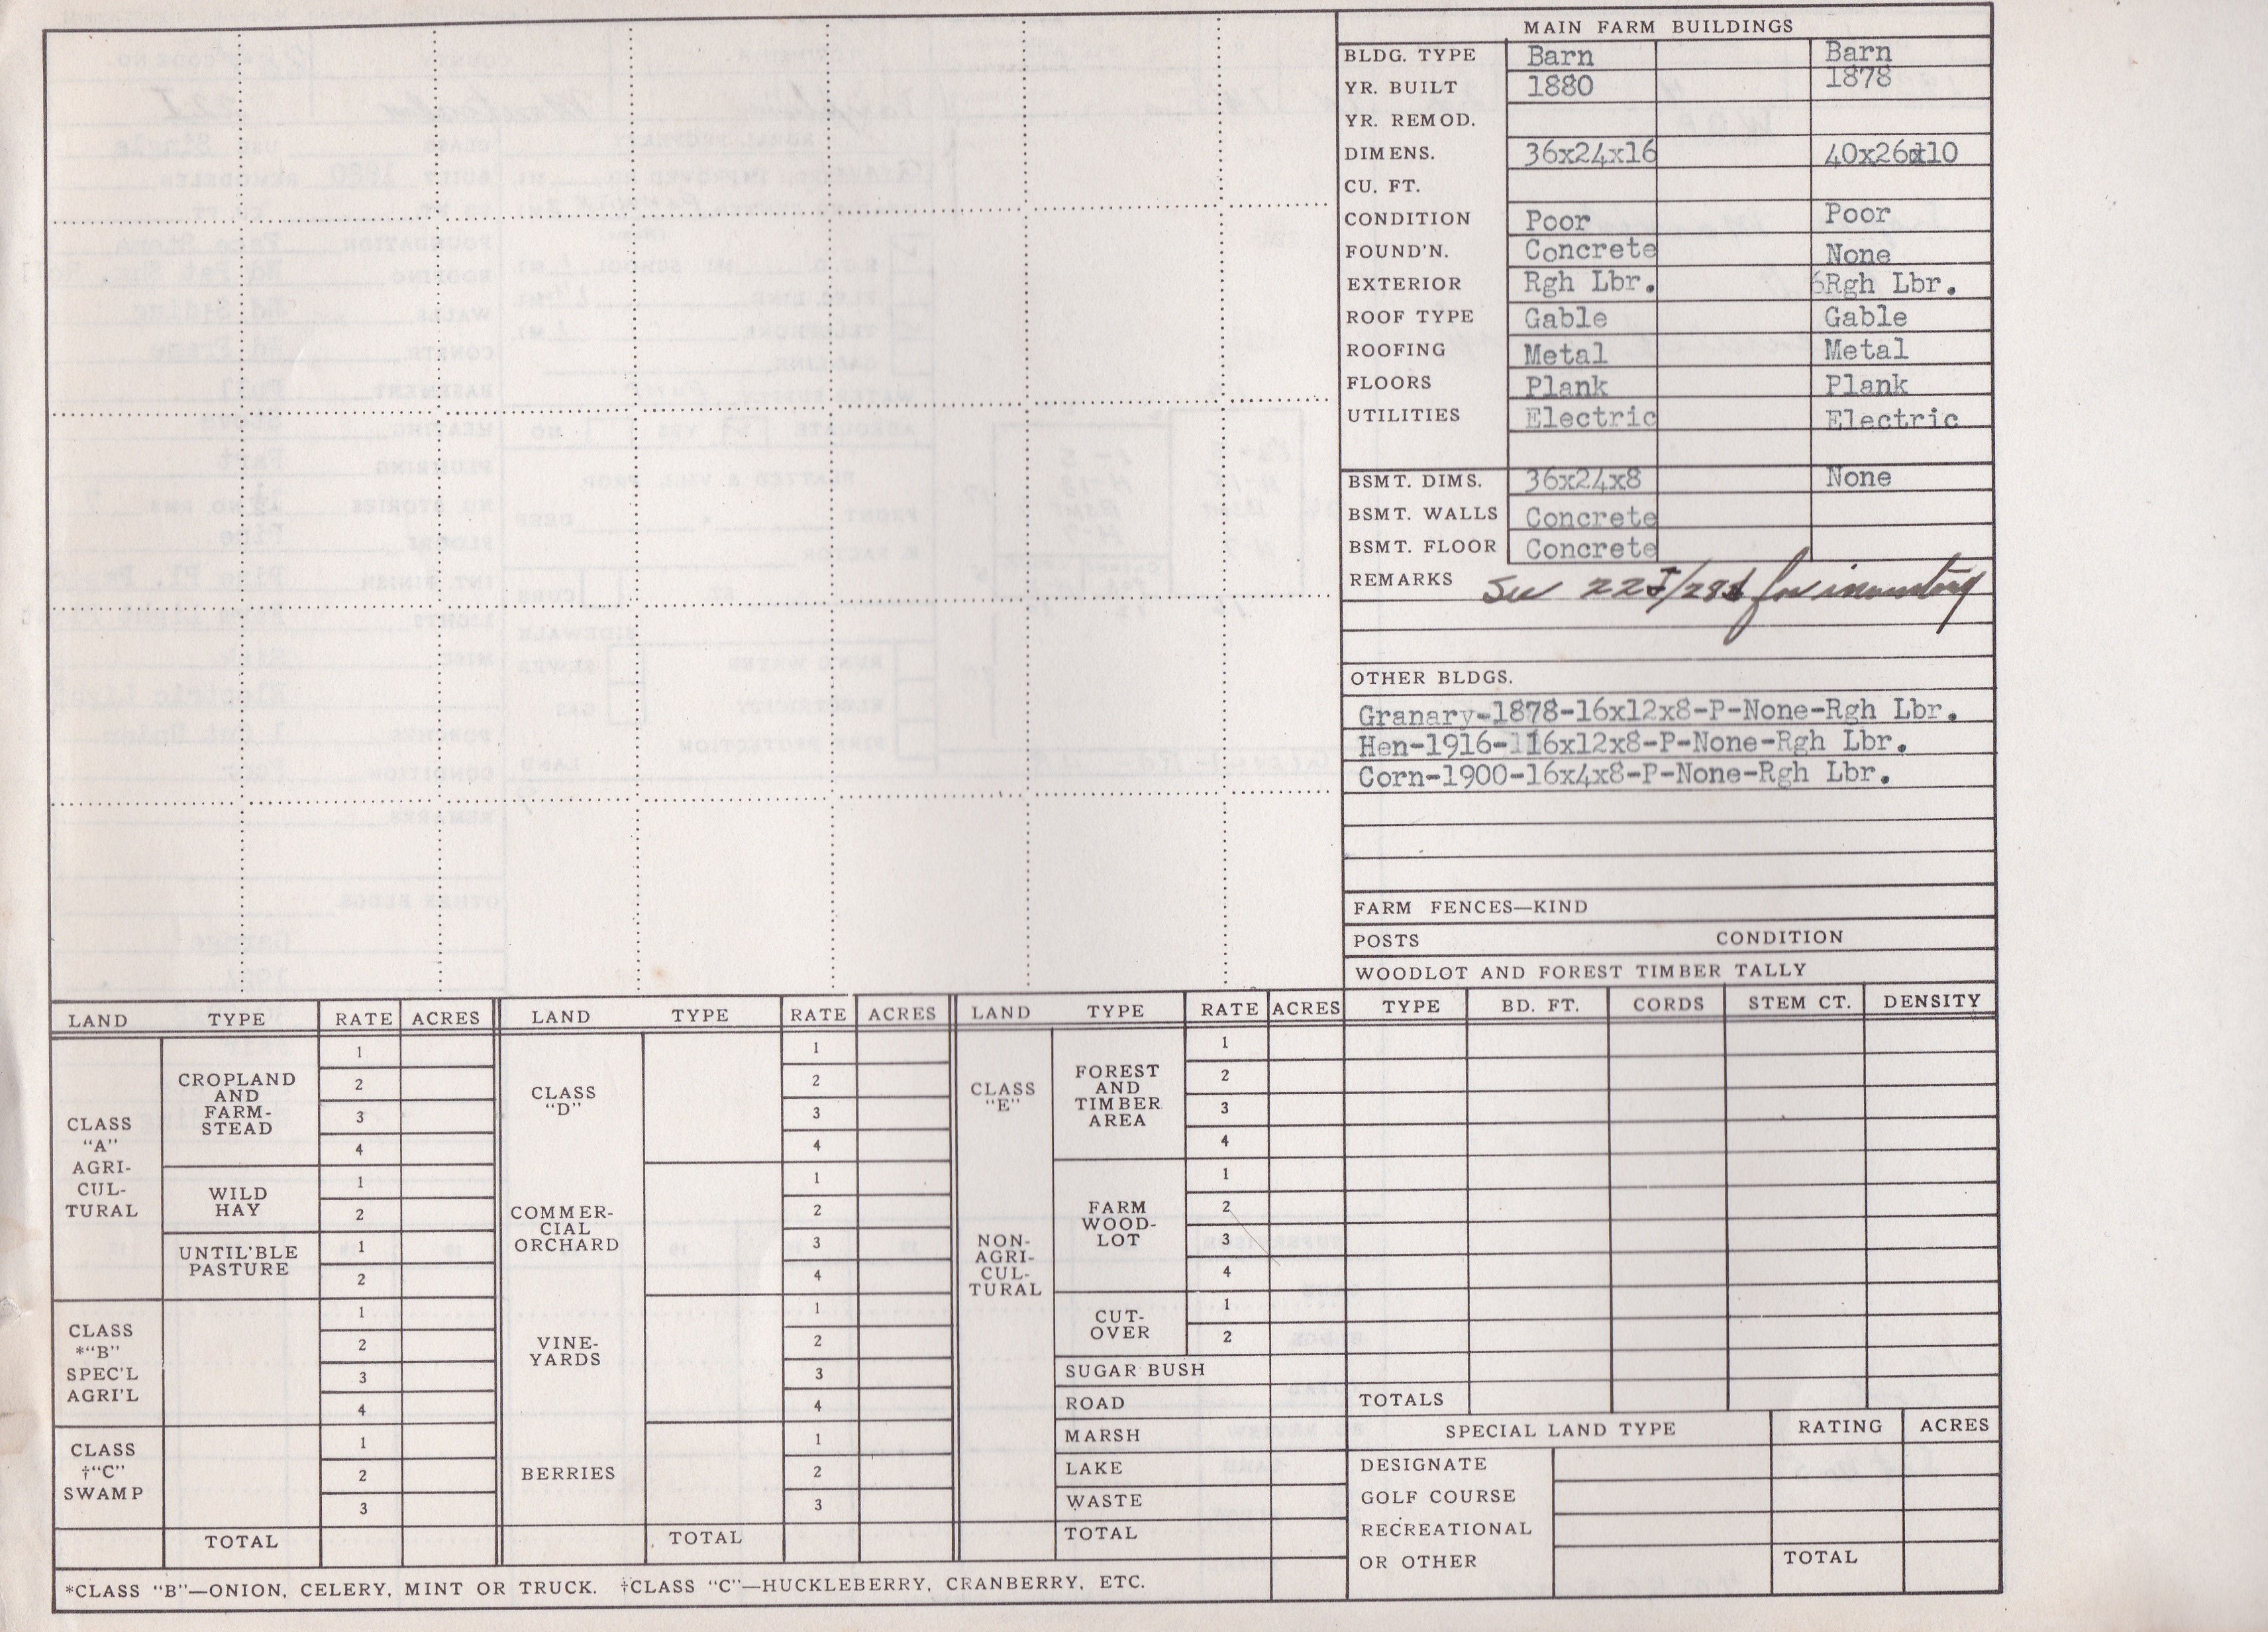 MAIN FARM BUILDINGS
BLDG. TYPE Barn Barn
YR. BUILT 1880 1878
YR. REMOD.
DIMENS. 36x24x16 40x26x10
CU. FT.
CONDITION Poor Poor
FOUND'N. Concrete None
EXTERIOR Rgh Lbr. Rgh Lbr.
ROOF TYPE Gable Gable
ROOFING Metal Metal
FLOORS Plank Plank
UTILITIES Electric Electric
BSMT. DIMS. 36x24x8 None
BSMT. WALLS Concrete
BSMT. FLOOR Concrete
REMARKS See 22I/28 for inventory
OTHER BLDGS.
Granary-1878-16x12x8-P-None-Rgh Lbr.
Hen-1916-16x12x8-P-None-Rgh Lbr.
Corn-1900-16x4x8-P-None-Rgh Lbr.
FARM FENCES—KIND
POSTS CONDITION
WOODLOT AND FOREST TIMBER TALLY
TYPE BD. FT. CORDS STEM CT. DENSITY
TOTALS
SPECIAL LAND TYPE RATING ACRES
DESIGNATE
GOLF COURSE
RECREATIONAL
OR OTHER TOTAL
LAND TYPE RATE ACRES
CLASS
"A"
AGRI-
CUL-
TURAL
CROPLAND
AND
FARM-
STEAD
1
2
3
4
WILD
HAY
1
2
UNTIL'BLE
PASTURE
1
2
CLASS
*"B"
SPEC'L
AGRI'L
1
2
3
4
CLASS
†"C"
SWAMP
1
2
3
TOTAL
LAND TYPE RATE ACRES
CLASS
"D"
1
2
3
4
COMMER-
CIAL
ORCHARD
1
2
3
4
VINE-
YARDS
1
2
3
4
BERRIES
1
2
3
TOTAL
LAND TYPE RATE ACRES
CLASS
"E"
NON-
AGRI-
CUL-
TURAL
FOREST
AND
TIMBER
AREA
1
2
3
4
FARM
WOOD-
LOT
1
2
3
4
CUT-
OVER
1
2
SUGAR BUSH
ROAD
MARSH
LAKE
WASTE
TOTAL
*CLASS "B"—ONION, CELERY, MINT OR TRUCK. †CLASS "C"—HUCKLEBERRY, CRANBERRY, ETC.